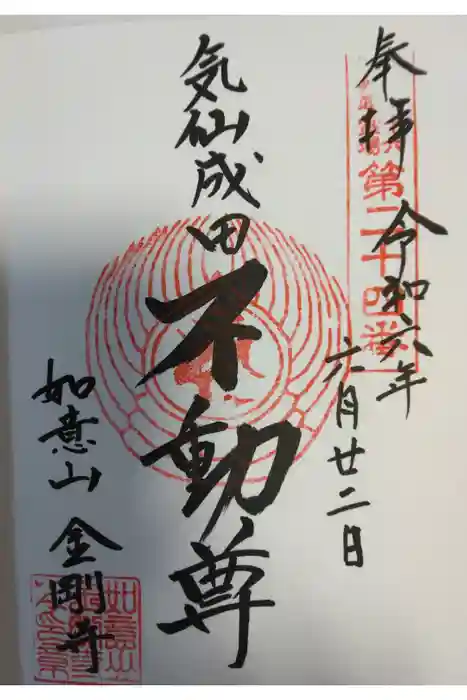 奉拝 令和六年
六月廿二日
第二十四番
気仙成田
不動尊
如意山 金剛寺